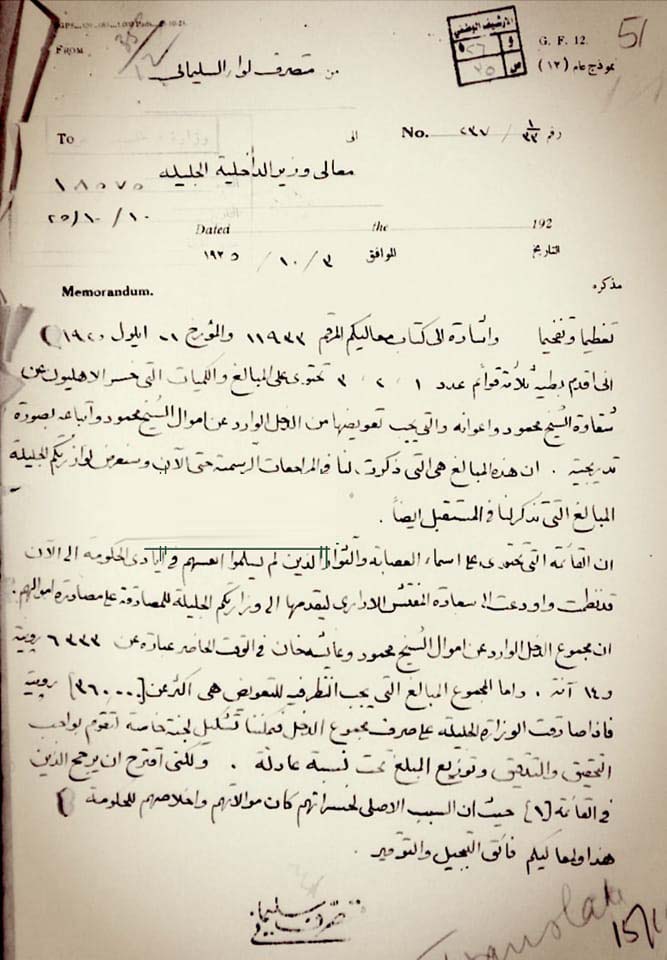 51
G. F. 12.
نموذج عام (١٢)
الارشيف الوطني
FROM
من متصرف لواء السليمانى
To الى No. ٢٣٧ / ١/٣٣ رقم
معالى وزير الداخلية الجليله
١٨٥٧٥
٢٥/١٠/١٠
Dated the 192
التاريخ ٣/١٠/ الموافق ١٩٢٥
Memorandum. مذكره
تعظيما وتفخيما واشارة الى كتاب معاليكم المرقم ١١٩٣٣ والمؤرخ ايلول
انى اقدم بطيه ثلاثة قوائم عدد ١ ، ٢ ، ٣ تحتوى على المبالغ والكميات التى خسر الاهليون من
شقاوة الشيخ محمود واعوانه والتى يجب تعويضها من الدخل الوارد عن اموال الشيخ محمود واتباعه بصورة
تدريجية . ان هذه المبالغ هى التى ذكرت لنا فى المراجعات الرسمية حتى الآن وسنعرض لوزارتكم الجليلة
المبالغ التى تذكر لنا فى المستقبل ايضاً .
ان القائمة التى تحتوى على اسماء العصابة والثوار الذين لم يسلموا انفسهم فى ايادى الحكومة الى الآن
قد نظمت واودعت الى سعادة المفتش الادارى ليقدمها الى وزارتكم الجليلة للمصادقة على مصادرة اموالهم .
ان مجموع الدخل الوارد عن اموال الشيخ محمود وعائشه خان فى الوقت الحاضر عبارة عن ٦٣٣٣ روپية
و ١٤ آنة . واما المجموع المبالغ التى يجب النظر فيه للتعويض هى اكثر من [٣٦٠٠٠٠] روپية
فاذا صادقت الوزارة الجليله على صرف مجموع الدخل فيمكننا تشكيل لجنة خاصة لتقوم بواجب
التحقيق والتدقيق وتوزيع المبلغ تحت نسبة عادلة . ولكنى اقترح ان يرجح الذين
فى القائمة [١] حيث ان السبب الاصلى لخسراتهم كان موالاتهم واخلاصهم للحكومة
هذا ولمعاليكم فائق التبجيل والتوقير .
متصرف سليمانى
Translate
15/1